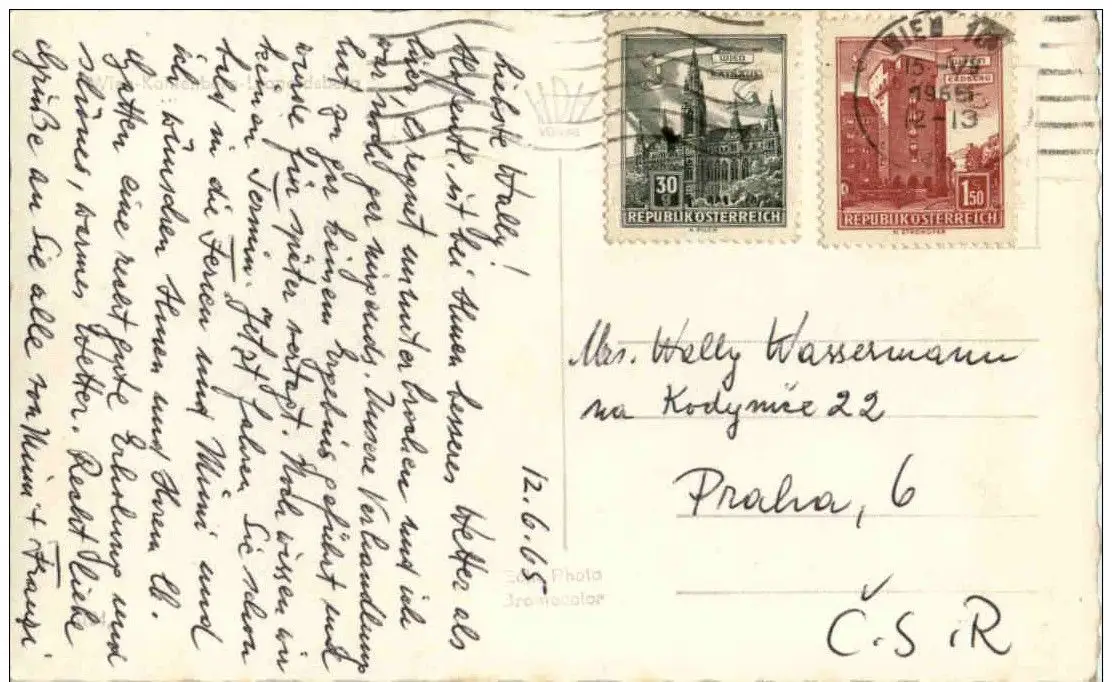 12.6.65
Liebste Wally!
Hoffentl. ist bei Ihnen besseres Wetter als
hier, es regnet ununterbrochen und ich
war noch gar nirgends. Unsere Verhandlung
hat zu gar keinem Ergebnis geführt und
wurde für später vertagt. Noch wissen wir
keinen Termin. Jetzt fahren Sie schon
bald in die Ferien und Mimi und
ich wünschen Ihnen und Ihrem lb.
Gatten eine recht gute Erholung und
schönes, warmes Wetter. Recht liebe
Grüße an Sie alle von Mimi + Franzi
Wien-Kahlenberg - Leopoldsberg
WIEN
RATHAUS
30
g
REPUBLIK ÖSTERREICH
WIEN
ERDBERG
1.50
REPUBLIK ÖSTERREICH
WIEN
15. VI
1965
12-13
Mrs. Wally Wassermann
na Kodymče 22
Praha, 6
Č.S.R
Echt Photo
Bromocolor